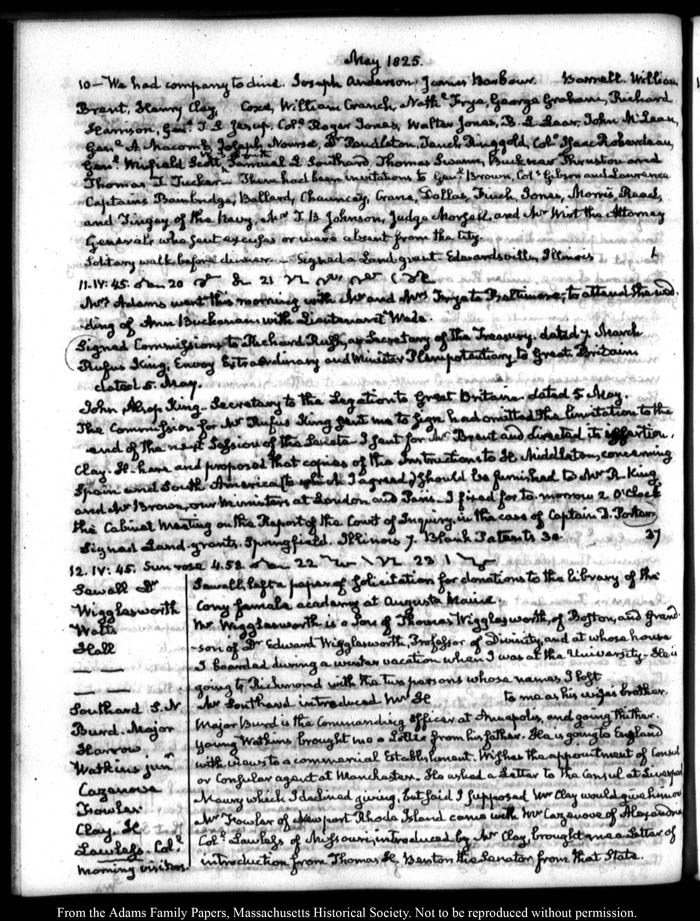 May 1825.
10 - We had company to dine. Joseph Anderson, James Barbour. Barrell. William
Brent. Henry Clay, Coxe, William Cranch, Nathl. Frye, George Graham, Richard
Harrison, Genl. T. S. Jesup. Coll. Roger Jones, Walter Jones, B. L. Lear, John McLean,
Genl. A. Macomb, Joseph Nourse, Dr. Pendleton, Tench Ringgold, Coll. Isaac Roberdeau,
Genl. Winfield Scott, Samuel L. Southard, Thomas Swann, Buckner Thruston and
Thomas T. Tucker. There had been invitations to Genl. Brown, Coll. Gibson and Lawrence
Captains Bainbridge, Ballard, Chauncey, Crane, Dallas, Finch, Jones, Morris, Read,
and Tingey of the Navy, Mr T. B. Johnson, Judge Morsell, and Mr Wirt the Attorney
General, who sent excuses or were absent from the City.
Solitary walk before dinner. Signed a Land grant. Edwardsville, Illinois 1
11. IV: 45. 20 21
Mrs Adams went this morning with Mr and Mrs Frye to Baltimore, to attend the wed-
ding of Ann Buchanan with Lieutenant Wade.
Signed Commissions to Richard Rush, as Secretary of the Treasury. dated 7 March
Rufus King, Envoy Extraordinary and Minister Plenipotentiary to Great Britain
dated 5. May.
John Alsop King - Secretary to the Legation to Great Britain. dated 5 May.
The Commission for Mr Rufus King sent me to sign had omitted the limitation to the
end of the next Session of the Senate. I sent for Mr Brent and directed its insertion.
Clay. H. here and proposed that copies of the Instructions to H. Middleton, concerning
Spain and South America (to which I agreed) should be furnished to Mr R. King
and Mr Brown, our Ministers at London and Paris. I fixed for to-morrow 2 O'Clock
the Cabinet Meeting on the Report of the Court of Inquiry, in the case of Captain D. Porter.
Signed Land-grants. Springfield. Illinois 7. Blank Patents 30 37
12. IV: 45. Sun rose 4.52. 22 23
Sewall Dr
Wigglesworth
Watts
Hall
Southard S. N.
Burd. Major
Harrow
Watkins junr
Cazenove
Fowler
Clay. H
Lawless. Coll.
Morning visitors.
Sewall, left a paper of solicitation for donations to the library of the
Cony female academy at Augusta Maine
Mr. Wigglesworth is a Son of Thomas Wigglesworth, of Boston, and grand-
-son of Dr Edward Wigglesworth, Professor of Divinity, and at whose house
I boarded during a winter vacation when I was at the University. He is
going to Richmond with the two persons whose names I lost
Mr Southard introduced Mr H to me as his wife's brother.
Major Burd is the Commanding Officer at Annapolis, and going thither.
Young Watkins brought me a Letter from his father. He is going to England
with views to a commercial Establishment. Wishes the appointment of Consul
or Consular agent at Manchester. He asked a Letter to the Consul at Liverpool
Maury which I declined giving, but said I supposed Mr Clay would give him one
Mr Fowler of Newport Rhode Island came with Mr Cazenove of Alexandria
Coll. Lawless of Missouri, introduced by Mr Clay, brought me a Letter of
introduction from Thomas H. Benton the Senator from that State.
From the Adams Family Papers, Massachusetts Historical Society. Not to be reproduced without permission.